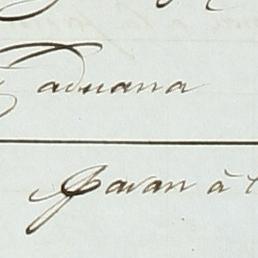 Paduana
Pavan à